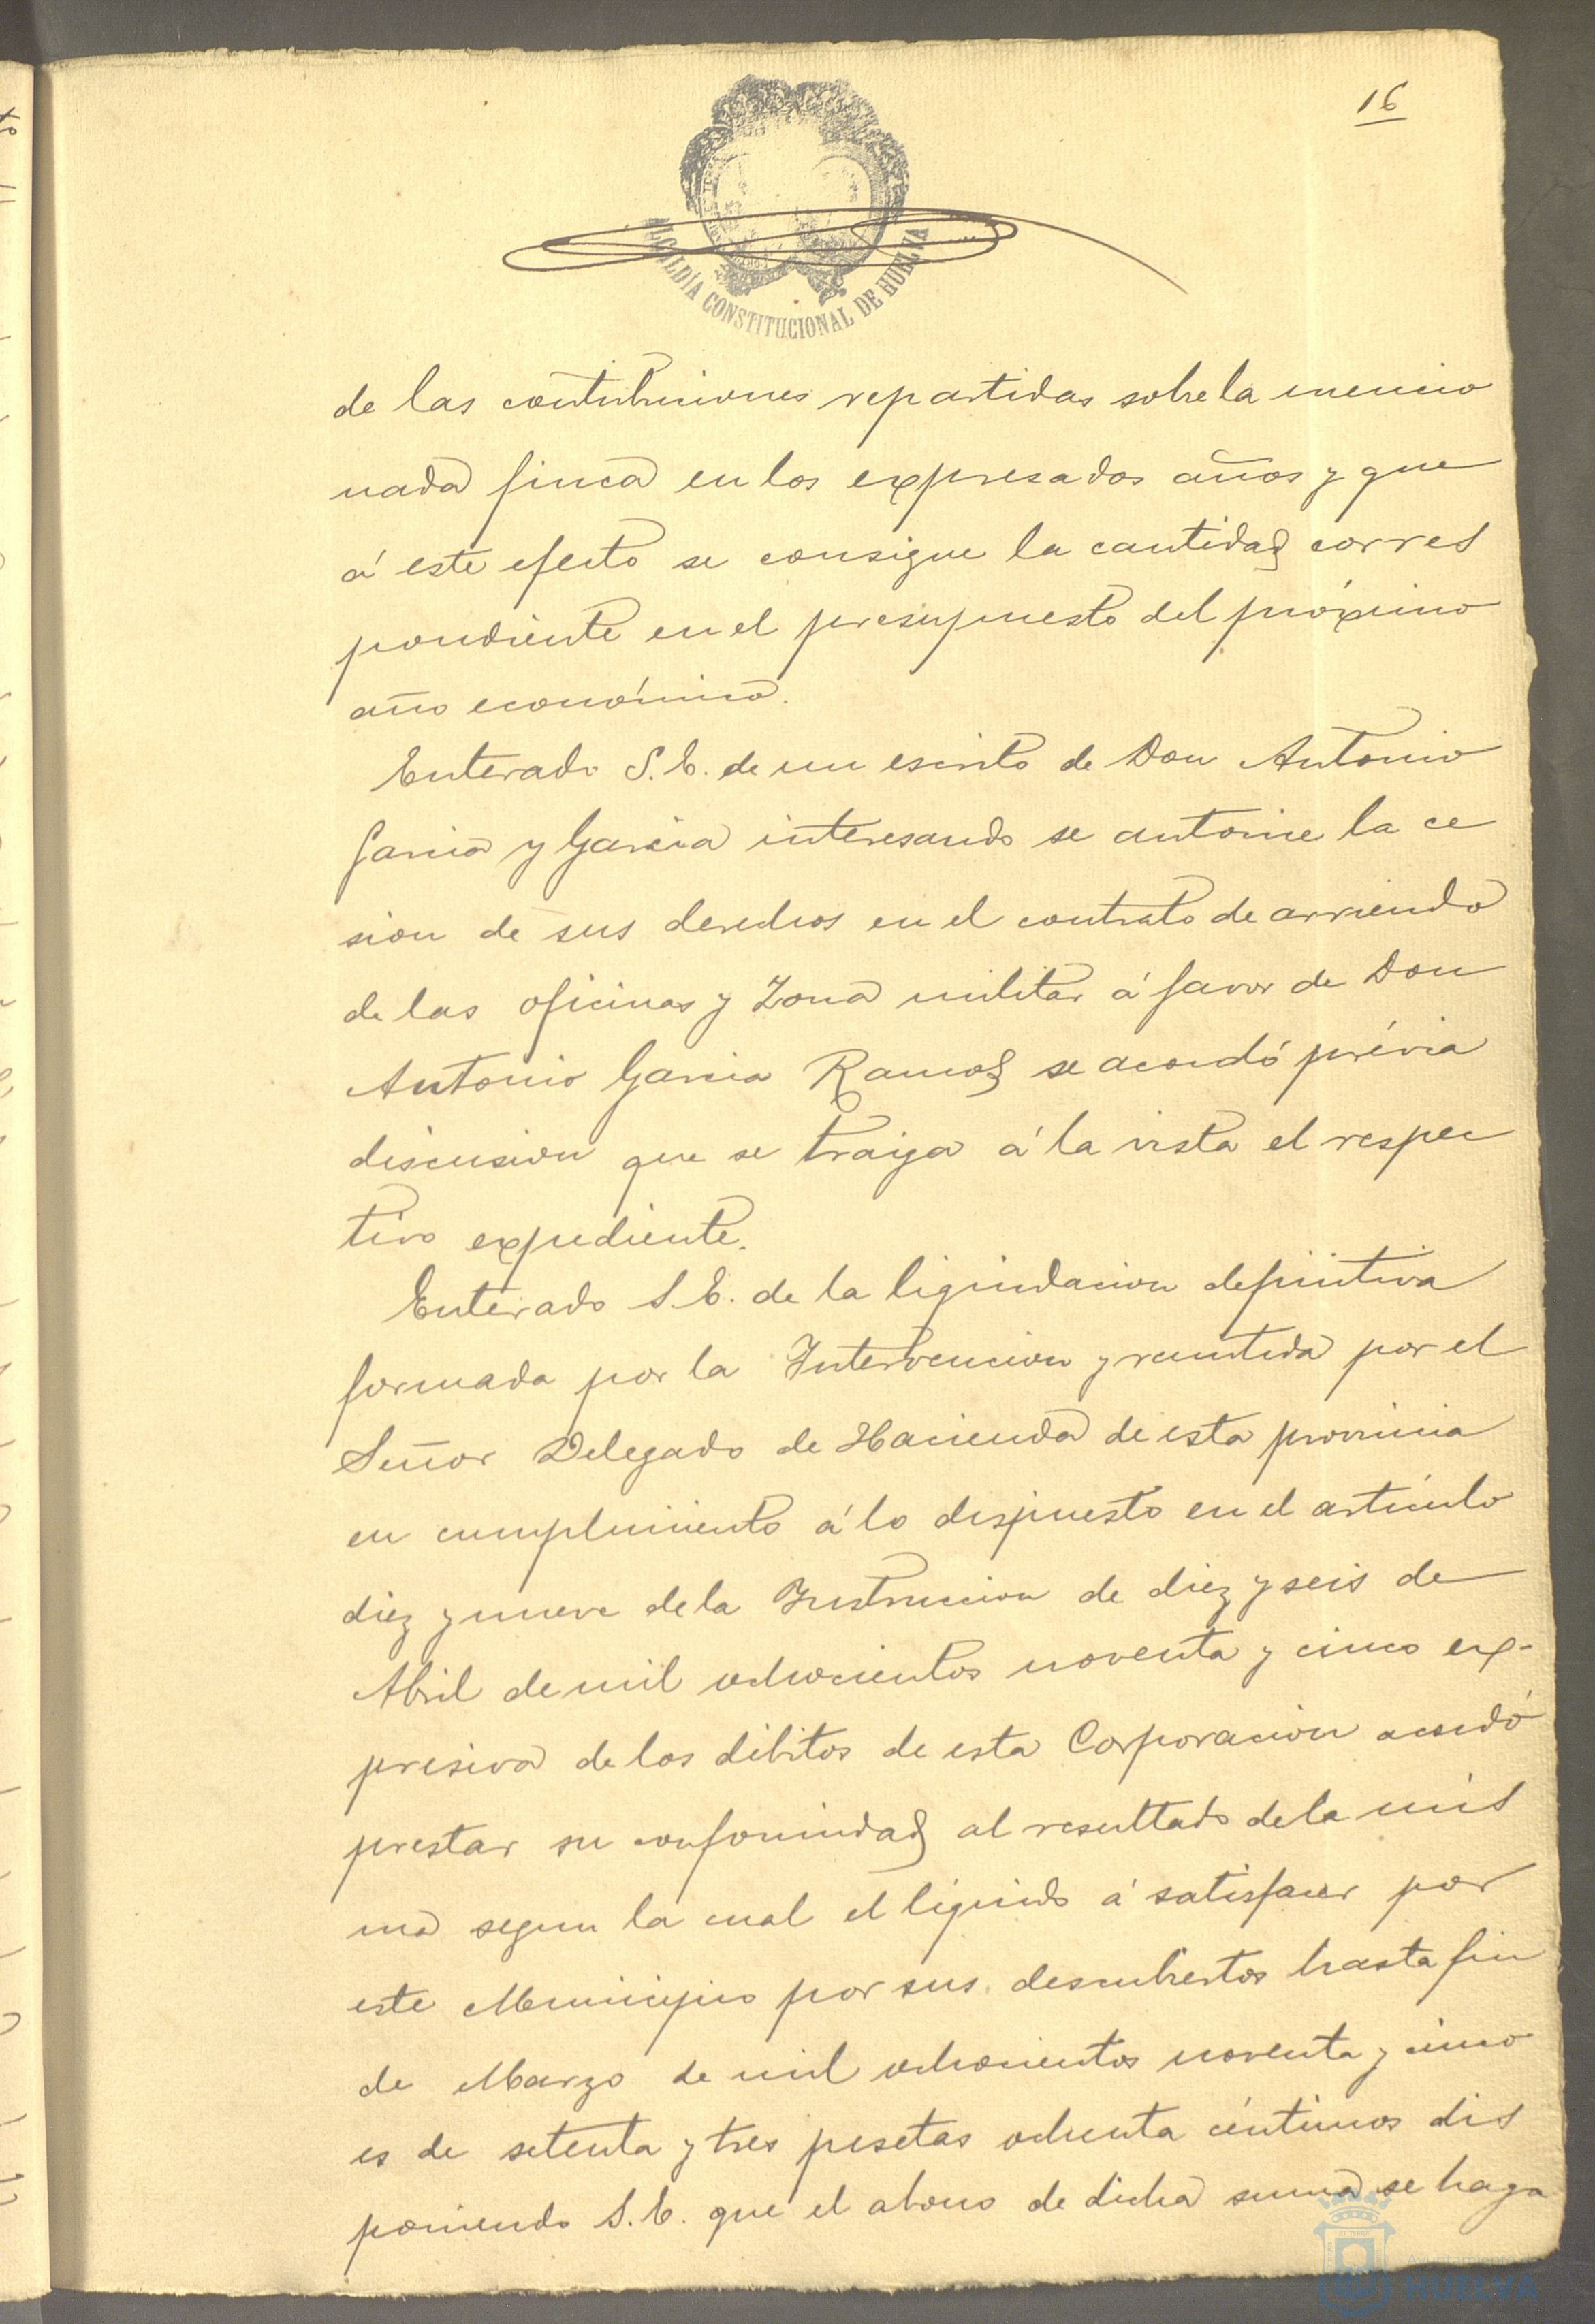 16
ALCALDÍA CONSTITUCIONAL DE HUELVA
de las contribuciones repartidas sobre la mencio
nada finca en los expresados años y que
á este efecto se consigne la cantidad corres
pondiente en el presupuesto del próximo
año económico.
Enterado S. E. de un escrito de Don Antonio
Garcia y Garcia interesando se autorice la ce
sion de sus derechos en el contrato de arriendo
de las oficinas y Zona militar á favor de Don
Antonio Garcia Ramos se acordó prévia
discusion que se traiga á la vista el respec
tivo expediente.
Enterado S. E. de la liquidacion definitiva
formada por la Intervencion y remitida por el
Señor Delegado de Hacienda de esta provincia
en cumplimiento á lo dispuesto en el artículo
diez y nueve de la Instruccion de diez y seis de
Abril de mil ochocientos noventa y cinco ex-
presiva de los débitos de esta Corporacion acordó
prestar su conformidad al resultado de la mis
ma segun la cual el líquido á satisfacer por
este Municipio por sus descubiertos hasta fin
de Marzo de mil ochocientos noventa y cinco
es de setenta y tres pesetas ochenta céntimos dis
poniendo S. E. que el abono de dicha suma se haga
HUELVA